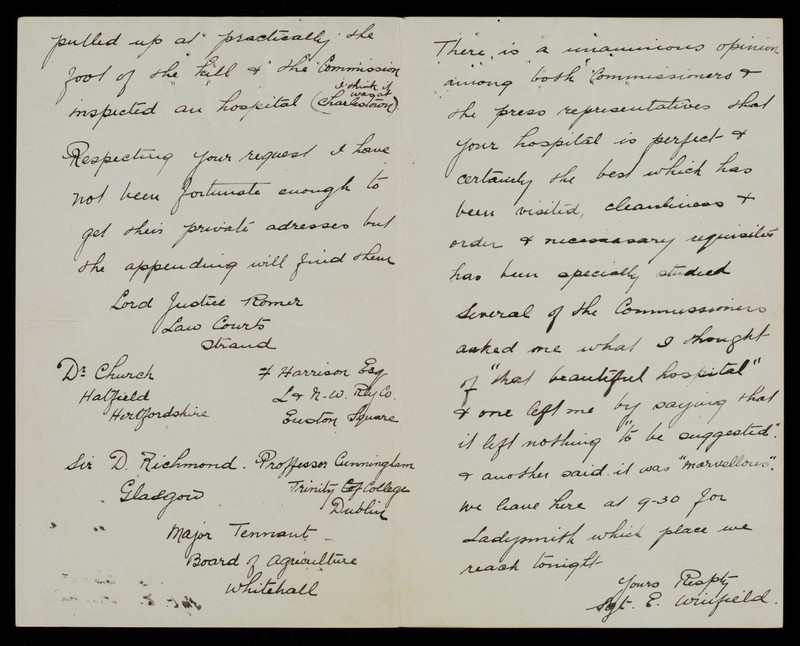 pulled up at practically the
foot of the hill & the Commission
I think it
was at
inspected an hospital (Charlestown)
Respecting your request I have
not been fortunate enough to
get their private adresses but
the appending will find them
Lord Justice Romer
Law Courts
Strand
Dr. Church
Hatfield
Hertfordshire
F Harrison Esq
L & N-W. Rly Co.
Euston Square
Sir D. Richmond.
Glasgow
Proffessor Cunningham
Trinity College
Dublin
Major Tennant
Board of Agriculture
Whitehall
There is a unaminious opinion
among both Commissioners &
the press representatives that
your hospital is perfect &
certainly the best which has
been visited, cleanliness &
order & necessasary requisites
has been specially studied
Several of the Commissioners
asked me what I thought
of "that beautiful hospital"
& one left me by saying that
it left nothing "to be suggested".
& another said it was "marvellous".
We leave here at 9-30 for
Ladysmith which place we
reach tonight
Yours Respty
Sgt. E. Winfield.